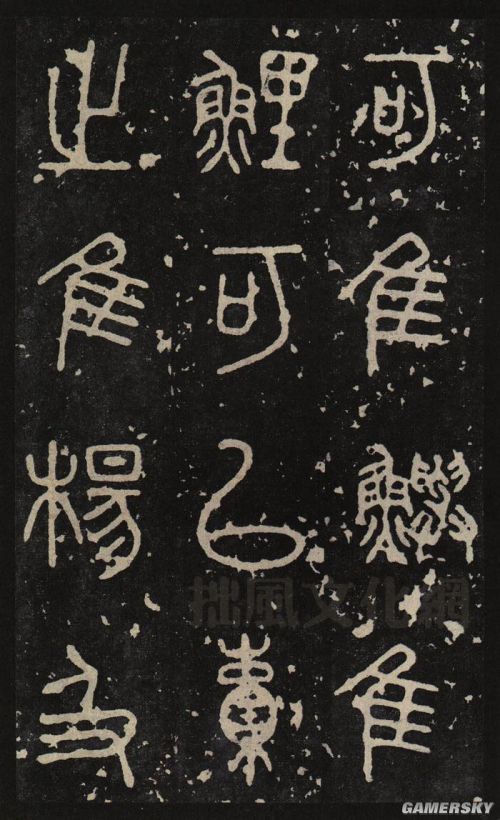 可隹鱮隹
鯉可㠯橐
之隹楊及
拙風文化網
GAMERSKY